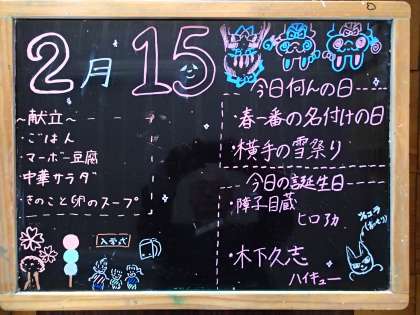 2月15
〜献立〜
・ごはん
・マーボー豆腐
・中華サラダ
・きのこと卵のスープ
入学式
今日何んの日
・春一番の名付けの日
・横手の雪祭り
今日の誕生日
・障子目蔵
ヒロアカ
・木下久志
ハイキュー